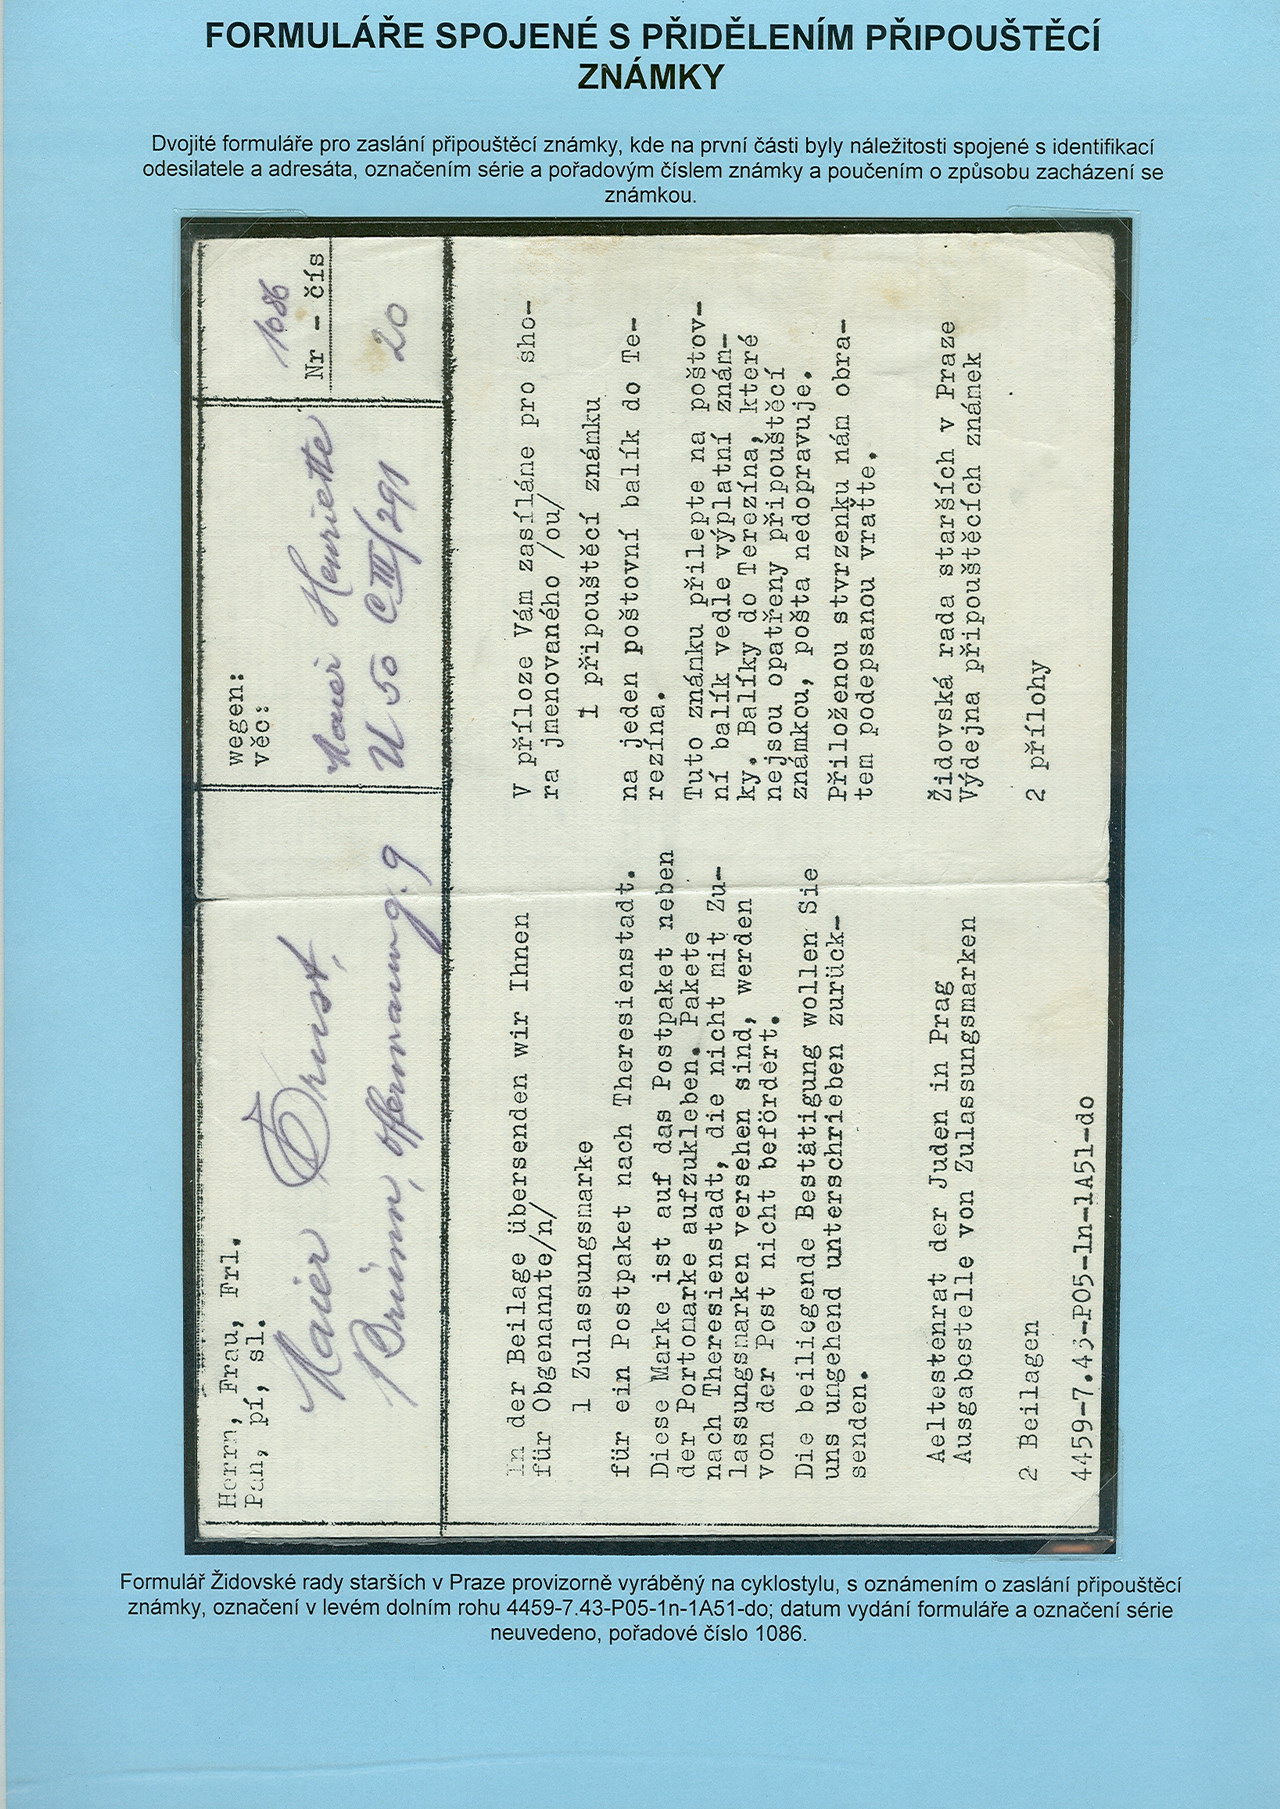 FORMULÁŘE SPOJENÉ S PŘIDĚLENÍM PŘIPOUŠTĚCÍ
ZNÁMKY
Dvojité formuláře pro zaslání připouštěcí známky, kde na první části byly náležitosti spojené s identifikací
odesilatele a adresáta, označením série a pořadovým číslem známky a poučením o způsobu zacházení se
známkou.
Herrn, Frau, Frl.
Pan, pí, sl.
Maier Ernst,
Brünn, Offermanng. 9
wegen:
věc:
Maier Henriette
U 50 C III/291
1086
Nr - čís
20
In der Beilage übersenden wir Ihnen
für Obgenannte/n/
1 Zulassungsmarke
für ein Postpaket nach Theresienstadt.
Diese Marke ist auf das Postpaket neben
der Portomarke aufzukleben. Pakete
nach Theresienstadt, die nicht mit Zu-
lassungsmarken versehen sind, werden
von der Post nicht befördert.
Die beiliegende Bestätigung wollen Sie
uns ungehend unterschrieben zurück-
senden.
Aeltestenrat der Juden in Prag
Ausgabestelle von Zulassungsmarken
2 Beilagen
4459-7.43-P05-1n-1A51-do
V příloze Vám zasíláne pro sho-
ra jmenovaného /ou/
1 připouštěcí známku
na jeden poštovní balík do Te-
rezína.
Tuto známku přilepte na poštov-
ní balík vedle výplatní znám-
ky. Balíky do Terezína, které
nejsou opatřeny připouštěcí
známkou, pošta nedopravuje.
Přiloženou stvrzenku nám obra-
tem podepsanou vraťte.
Židovská rada starších v Praze
Výdejna připouštěcích známek
2 přílohy
Formulář Židovské rady starších v Praze provizorně vyráběný na cyklostylu, s oznámením o zaslání připouštěcí
známky, označení v levém dolním rohu 4459-7.43-P05-1n-1A51-do; datum vydání formuláře a označení série
neuvedeno, pořadové číslo 1086.